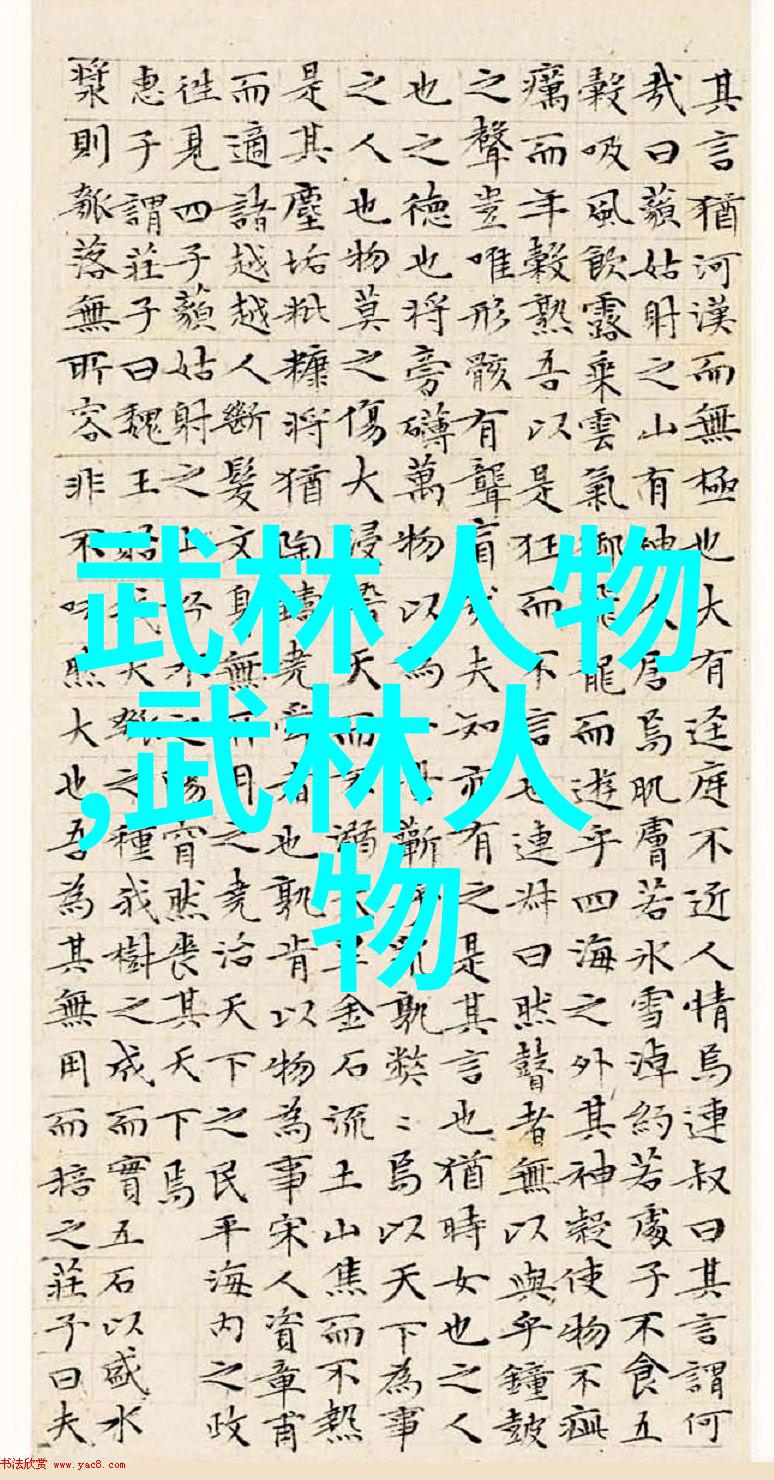 其言猶河漢而無極也大有迳庭不近人情焉連叔曰其言謂何
哉曰藐姑射之山有神人居焉肌膚若氷雪淖約若處子不食五
穀吸風飲露乗雲氣御飛龍而遊乎四海之外其神凝使物不疵
癘而年穀熟吾以是狂而不信也連叔曰然瞽者無以與乎鐘皷
之聲豈唯形骸有聾盲哉夫知亦有之是其言也猶時女也之人
也之德也将旁礴萬物以為一世蘄乎亂孰弊〻焉以天下為事
之人也物莫之傷大浸稽天而不溺大旱金石流土山焦而不熱
是其塵垢粃糠将猶陶鑄堯舜者也孰肯以物為事宋人資章甫
而適諸越越人斷髮文身無所用之堯治天下之民平海内之政
往見四子藐姑射之山汾水之陽窅然喪其天下焉
惠子謂莊子曰魏王貽我大瓠之種我樹之成而實五石以盛水
漿則瓠落無所容非不呺然大也吾為其無用而掊之莊子曰夫
武林人物
,武林人
物
书法欣赏 www.yac8.com